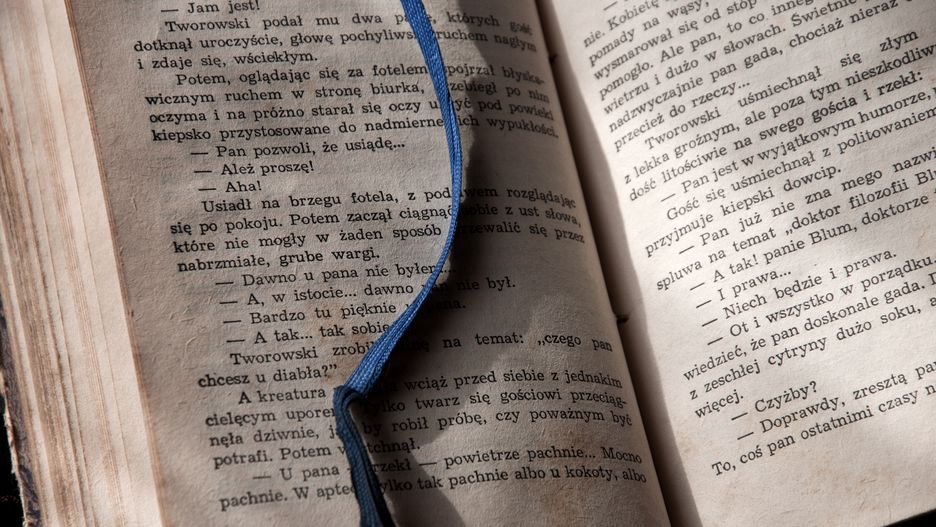 — Jam jest!
Tworowski podał mu dwa których gość
dotknął uroczyście, głowę pochyliws ruchem nagłym
i zdaje się, wściekłym.
Potem, oglądając się za fotelem pojrzał błyska-
wicznym ruchem w stronę biurka, rzebiegł po nim
oczyma i na próżno starał się oczy u yć pod powieki
kiepsko przystosowane do nadmierne ich wypukłości.
— Pan pozwoli, że usiądę...
— Ależ proszę!
— Aha!
Usiadł na brzegu fotela, z pod wem rozglądając
się po pokoju. Potem zaczął ciągnąć sobie z ust słowa,
które nie mogły w żaden sposób rzewalić się przez
nabrzmiałe, grube wargi.
— Dawno u pana nie byłem...
— A, w istocie... dawno an nie był.
— Bardzo tu pięknie ana.
— A tak... tak sobie
Tworowski zrobił nę na temat: „czego pan
chcesz u diabła?”
A kreatura a wciąż przed siebie z jednakim
cielęcym uporem ylko twarz się gościowi przeciąg-
nęła dziwnie, ja by robił próbę, czy poważnym być
potrafi. Potem w tchnął.
— U pana rzekł — powietrze pachnie... Mocno
pachnie. W aptec ylko tak pachnie albo u kokoty, albo
— Kobietę
nie.
pomady na wąsy,
wysmarował się od stóp
pomogło. Ale pan, to co innego
wietrzu i dużo w słowach. Świetnie
nadzwyczajnie pan gada, chociaż nieraz
przecież do rzeczy...
Tworowski uśmiechnął się złym
z lekka groźnym, ale poza tym nieszkodliw
dość litościwie na swego gościa i rzekł:
— Pan jest w wyjątkowym humorze,
Gość się uśmiechnął z politowaniem
przyjmuje kiepski dowcip.
— Pan już nie zna mego nazwi
spluwa na temat „doktor filozofii Blu
— A tak! panie Blum, doktorze
— I prawa...
— Niech będzie i prawa.
— Ot i wszystko w porządku.
wiedzieć, że pan doskonale gada.
z zeschłej cytryny dużo soku, a
więcej.
— Czyżby?
— Doprawdy, zresztą pa
To, coś pan ostatnimi czasy n